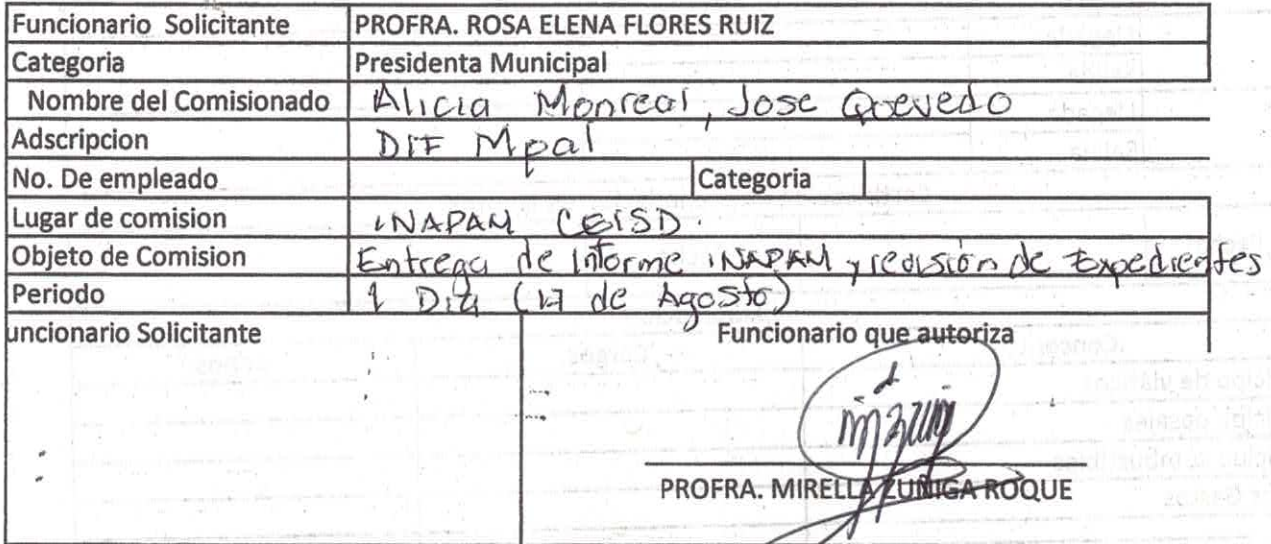 Funcionario Solicitante PROFRA. ROSA ELENA FLORES RUIZ
Categoria Presidenta Municipal
Nombre del Comisionado Alicia Monreal, Jose Quevedo
Adscripcion DIF Mpal
No. De empleado Categoria
Lugar de comision INAPAM CEISD.
Objeto de Comision Entrega de Informe INAPAM y revisión de Expedientes
Periodo 1 Dia (17 de Agosto)
uncionario Solicitante Funcionario que autoriza
PROFRA. MIRELLA ZUÑIGA ROQUE